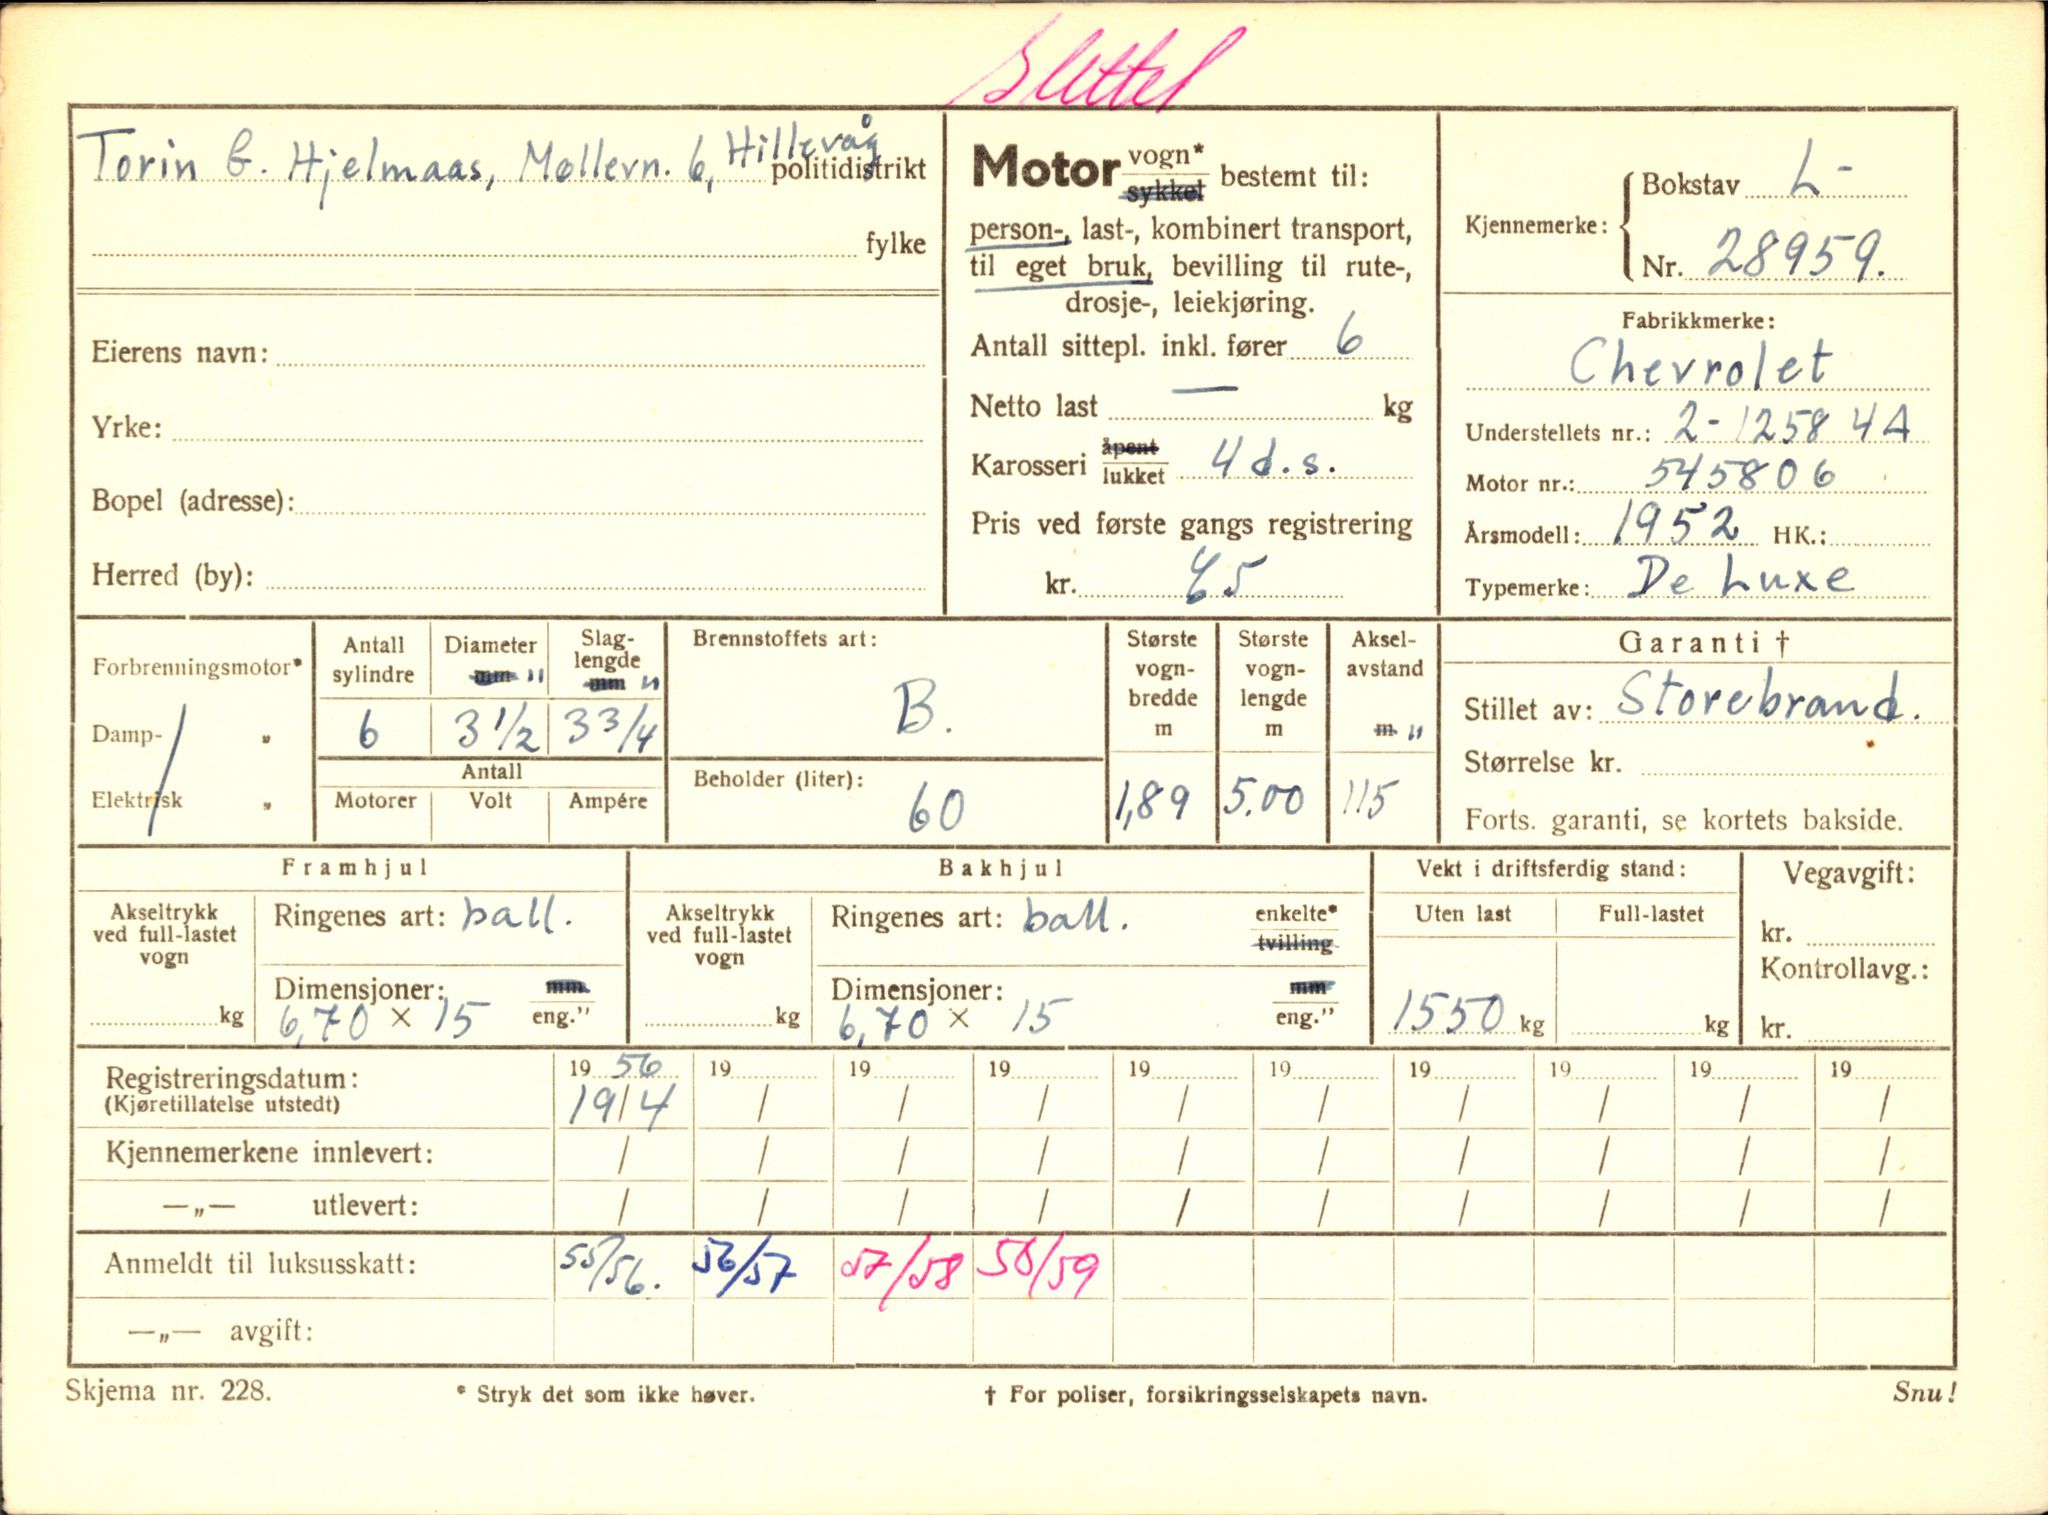 Slettet
Torin G. Hjelmaas, Møllevn. 6, Hillevåg politidistrikt
fylke
Eierens navn:
Yrke:
Bopel (adresse):
Herred (by):
Motor vogn*
sykkel bestemt til:
person-, last-, kombinert transport,
til eget bruk, bevilling til rute-,
drosje-, leiekjøring.
Antall sittepl. inkl. fører 6
Netto last — kg
Karosseri åpent
lukket 4 d. s.
Pris ved første gangs registrering
kr.
Kjennemerke: Bokstav L-
Nr. 28959.
Fabrikkmerke:
Chevrolet
Understellets nr.: 2-1258 4A
Motor nr.: 545806
Årsmodell: 1952 HK.:
Typemerke: De Luxe
Forbrenningsmotor*
Damp- „
Elektrisk „
Antall sylindre
6
Diameter mm "
3 1/2
Slag-
lengde
mm "
3 3/4
Antall
Motorer Volt Ampére
Brennstoffets art:
B.
Beholder (liter):
60
Største
vogn-
bredde
m
1,89
Største
vogn-
lengde
m
5.00
Aksel-
avstand
m "
115
Garanti †
Stillet av: Storebrand.
Størrelse kr.
Forts. garanti, se kortets bakside.
Framhjul
Akseltrykk
ved full-lastet
vogn
kg
Ringenes art: ball.
Dimensjoner: mm
6,70 × 15 eng."
Bakhjul
Akseltrykk
ved full-lastet
vogn
kg
Ringenes art: ball. enkelte*
tvilling
Dimensjoner: mm
6,70 × 15 eng."
Vekt i driftsferdig stand:
Uten last Full-lastet
1550 kg kg
Vegavgift:
kr.
Kontrollavg.:
kr.
Registreringsdatum: 19 56 19 19 19 19 19 19 19 19 19
(Kjøretillatelse utstedt) 19/4 / / / / / / / / /
Kjennemerkene innlevert: / / / / / / / / / /
—„— utlevert: / / / / / / / / / /
Anmeldt til luksusskatt: 55/56. 56/57 57/58 58/59
—„— avgift:
Skjema nr. 228. * Stryk det som ikke høver. † For poliser, forsikringsselskapets navn. Snu!